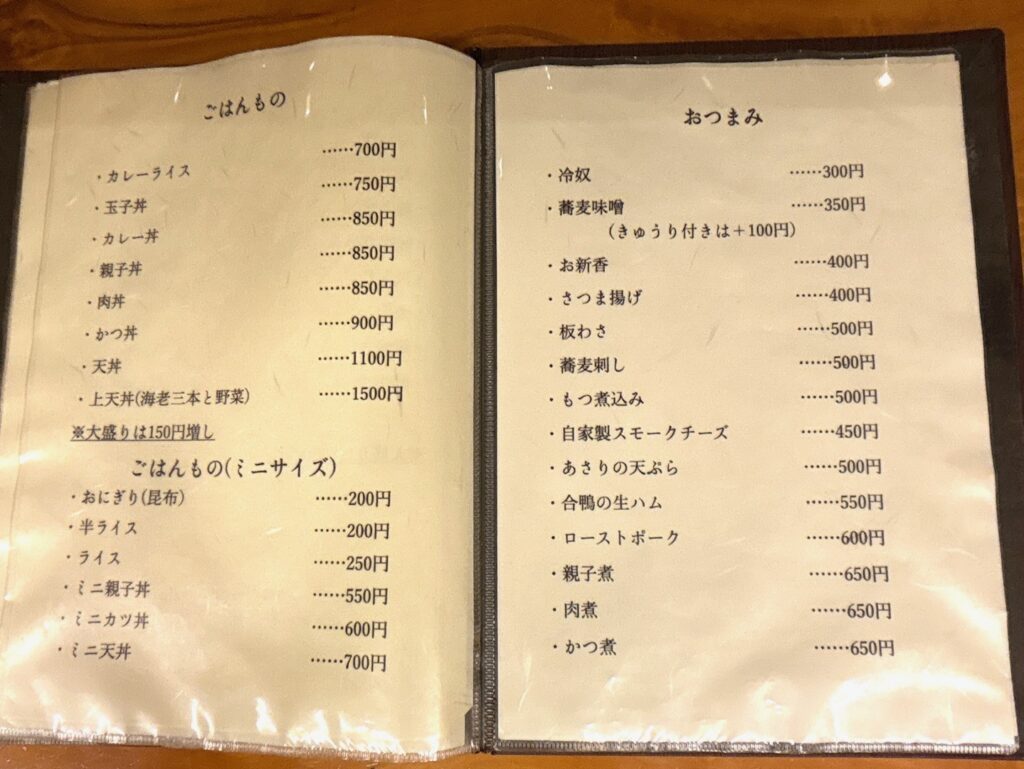 ごはんもの
・カレーライス ……700円
・玉子丼 ……750円
・カレー丼 ……850円
・親子丼 ……850円
・肉丼 ……850円
・かつ丼 ……900円
・天丼 ……1100円
・上天丼(海老三本と野菜) ……1500円
※大盛りは150円増し
ごはんもの(ミニサイズ)
・おにぎり(昆布) ……200円
・半ライス ……200円
・ライス ……250円
・ミニ親子丼 ……550円
・ミニカツ丼 ……600円
・ミニ天丼 ……700円
おつまみ
・冷奴 ……300円
・蕎麦味噌 ……350円
(きゅうり付きは＋100円)
・お新香 ……400円
・さつま揚げ ……400円
・板わさ ……500円
・蕎麦刺し ……500円
・もつ煮込み ……500円
・自家製スモークチーズ ……450円
・あさりの天ぷら ……500円
・合鴨の生ハム ……550円
・ローストポーク ……600円
・親子煮 ……650円
・肉煮 ……650円
・かつ煮 ……650円